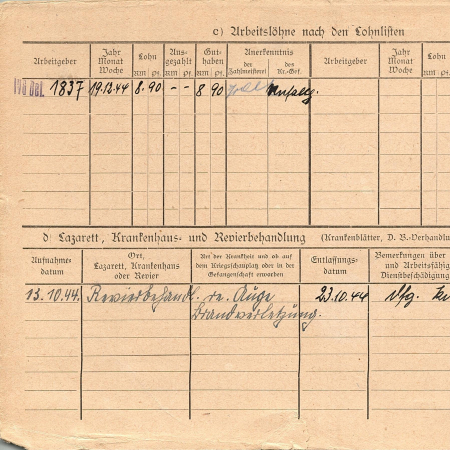 c) Arbeitslöhne nach den Lohnlisten
Arbeitgeber
Jahr
Monat
Woche
Lohn
RM pf.
Aus-
gezahlt
RM pf.
Gut-
haben
RM pf.
Anerkenntnis
der
Zahlmeisterei
des
Kr.-Gef.
Arbeitgeber
Jahr
Monat
Woche
Lohn
RM pf.
1837 19.12.44 8.90 - - 8 90
d) Lazarett, Krankenhaus- und Revierbehandlung (Krankenblätter, D. B.-Verhandlu
Aufnahme-
datum
Ort,
Lazarett, Krankenhaus
oder Revier
Art der Krankheit und ob auf
dem Kriegsschauplatz oder in der
Gefangenschaft erworben
Entlassungs-
datum
Bemerkungen über
und Arbeitsfähig
Dienstbeschädigung
13.10.44. Revierbehandl. re. Auge 23.10.44 dfg.
Brandverletzung.